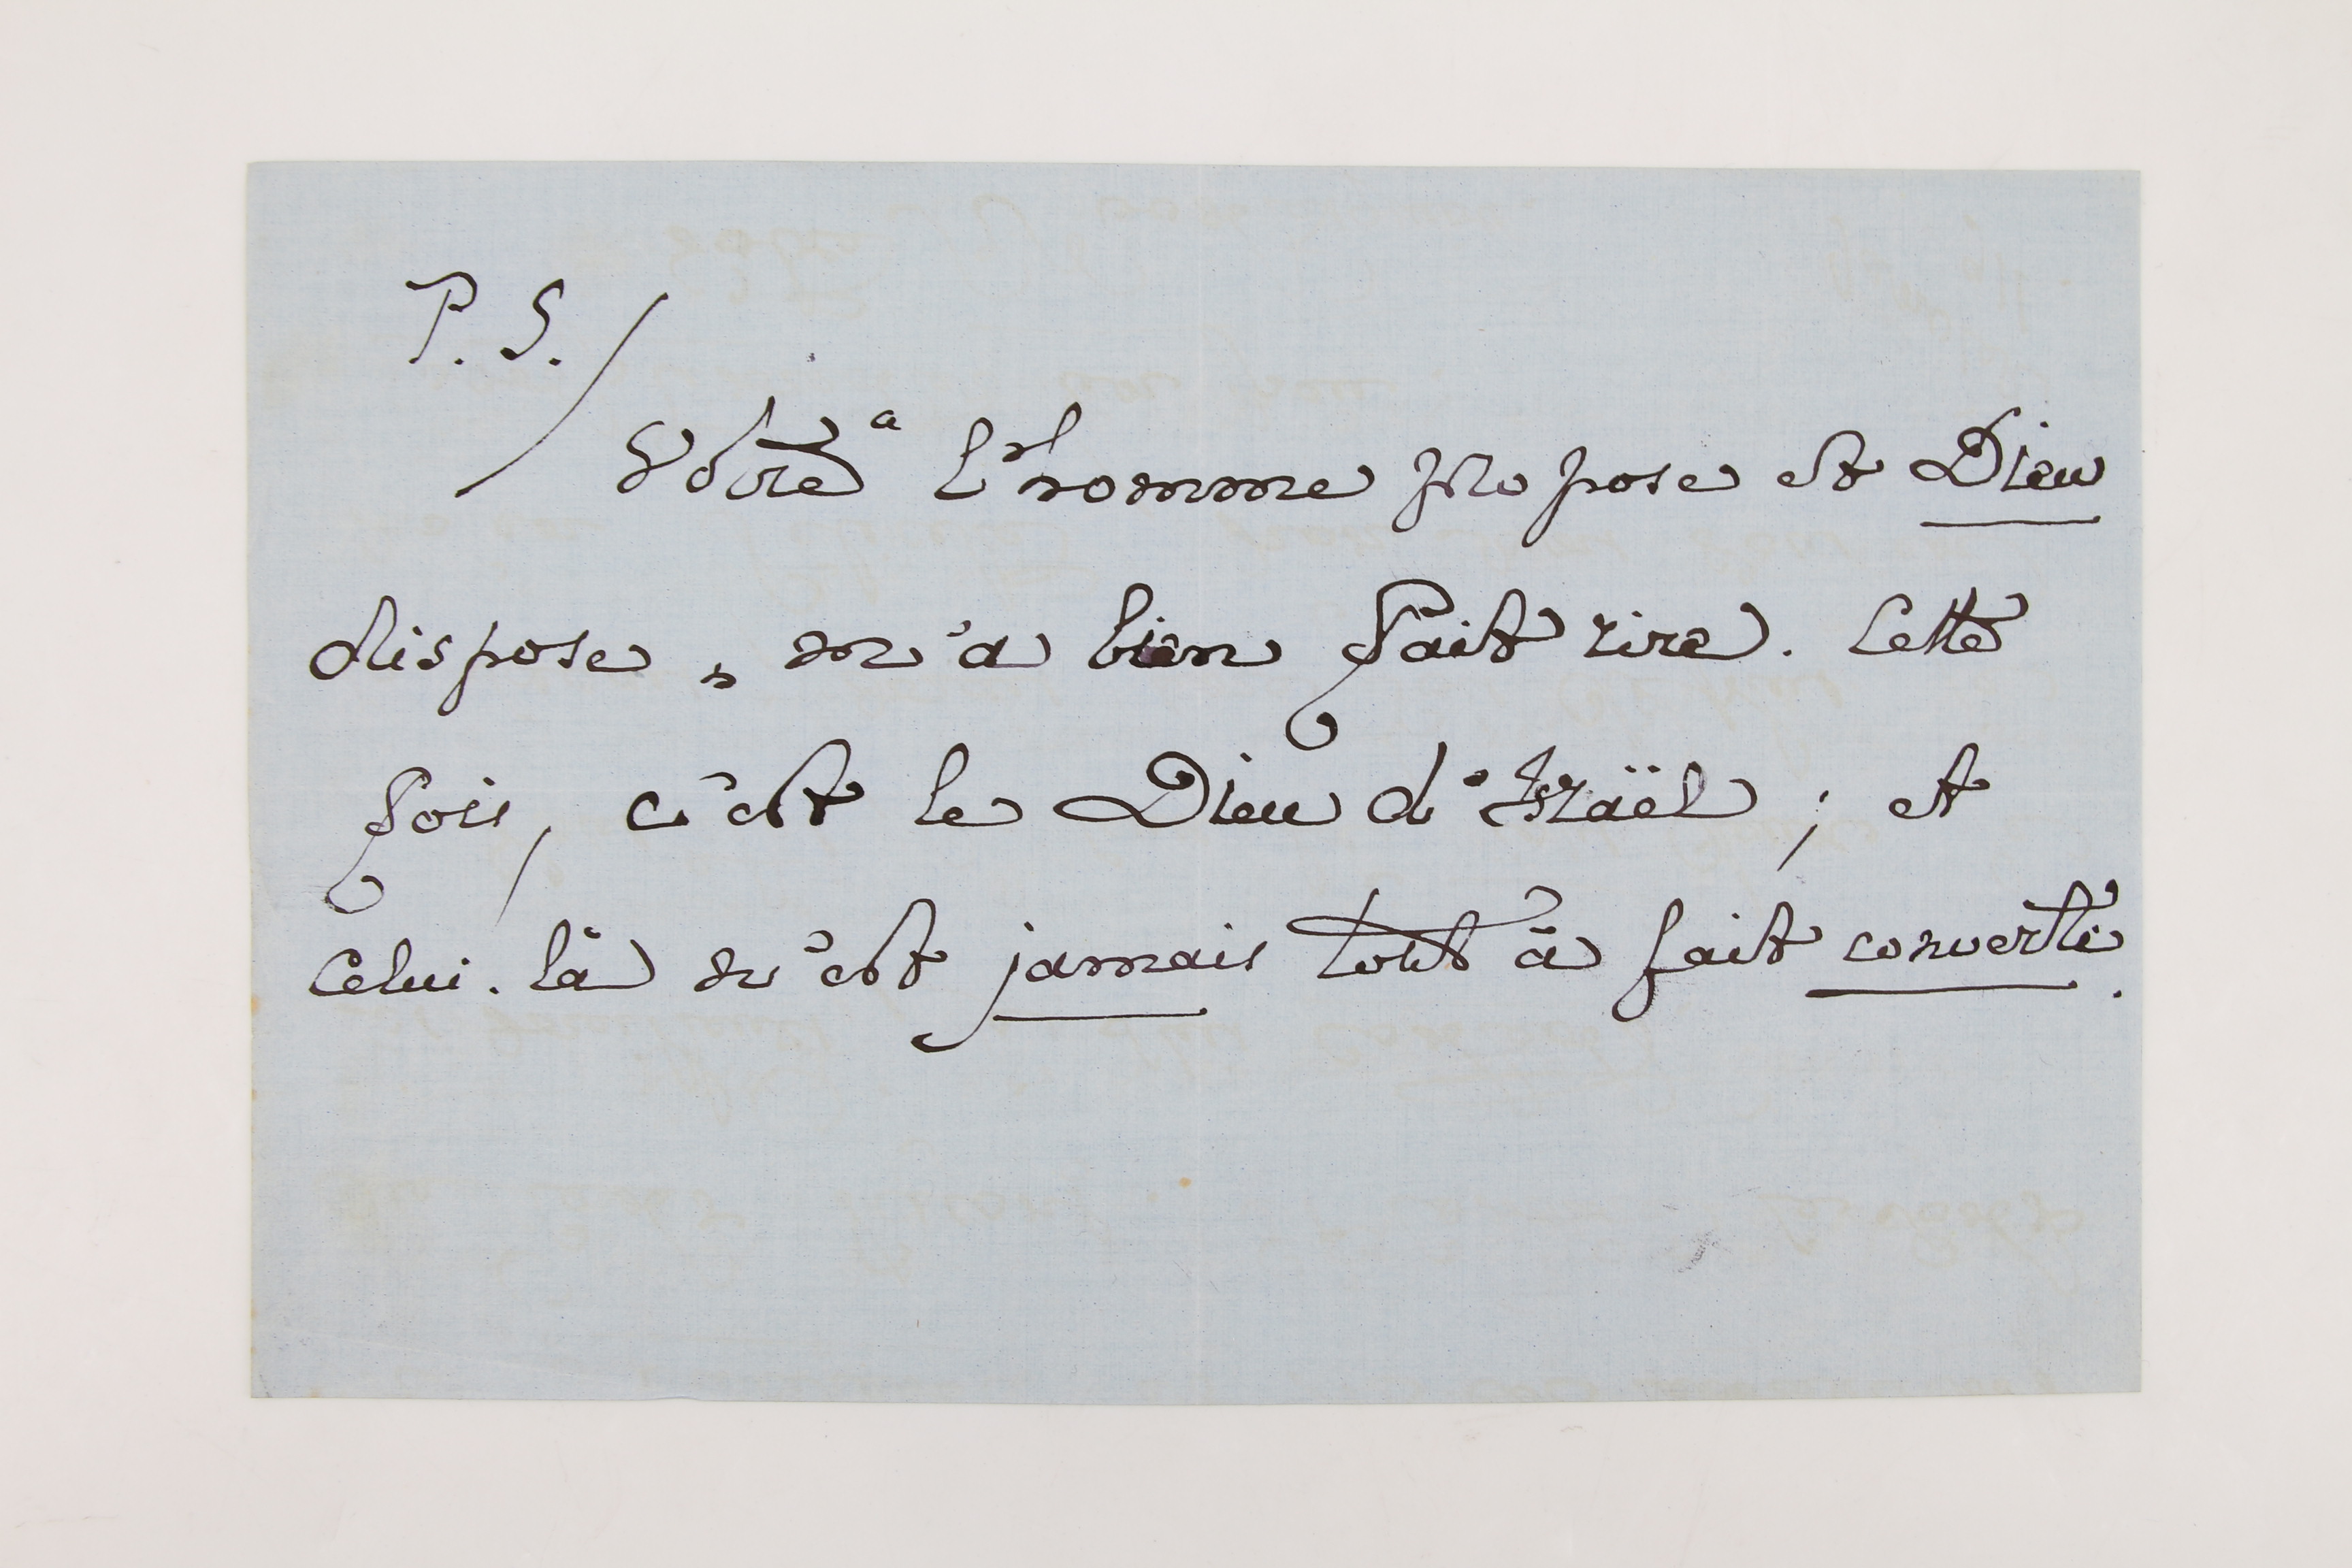 P. S./
Votre " l'homme propose et Dieu
dispose " m'a bien fait rire. Cette
fois, c'est le Dieu d'Israël ; et
Celui-là n'est jamais tout à fait converti.